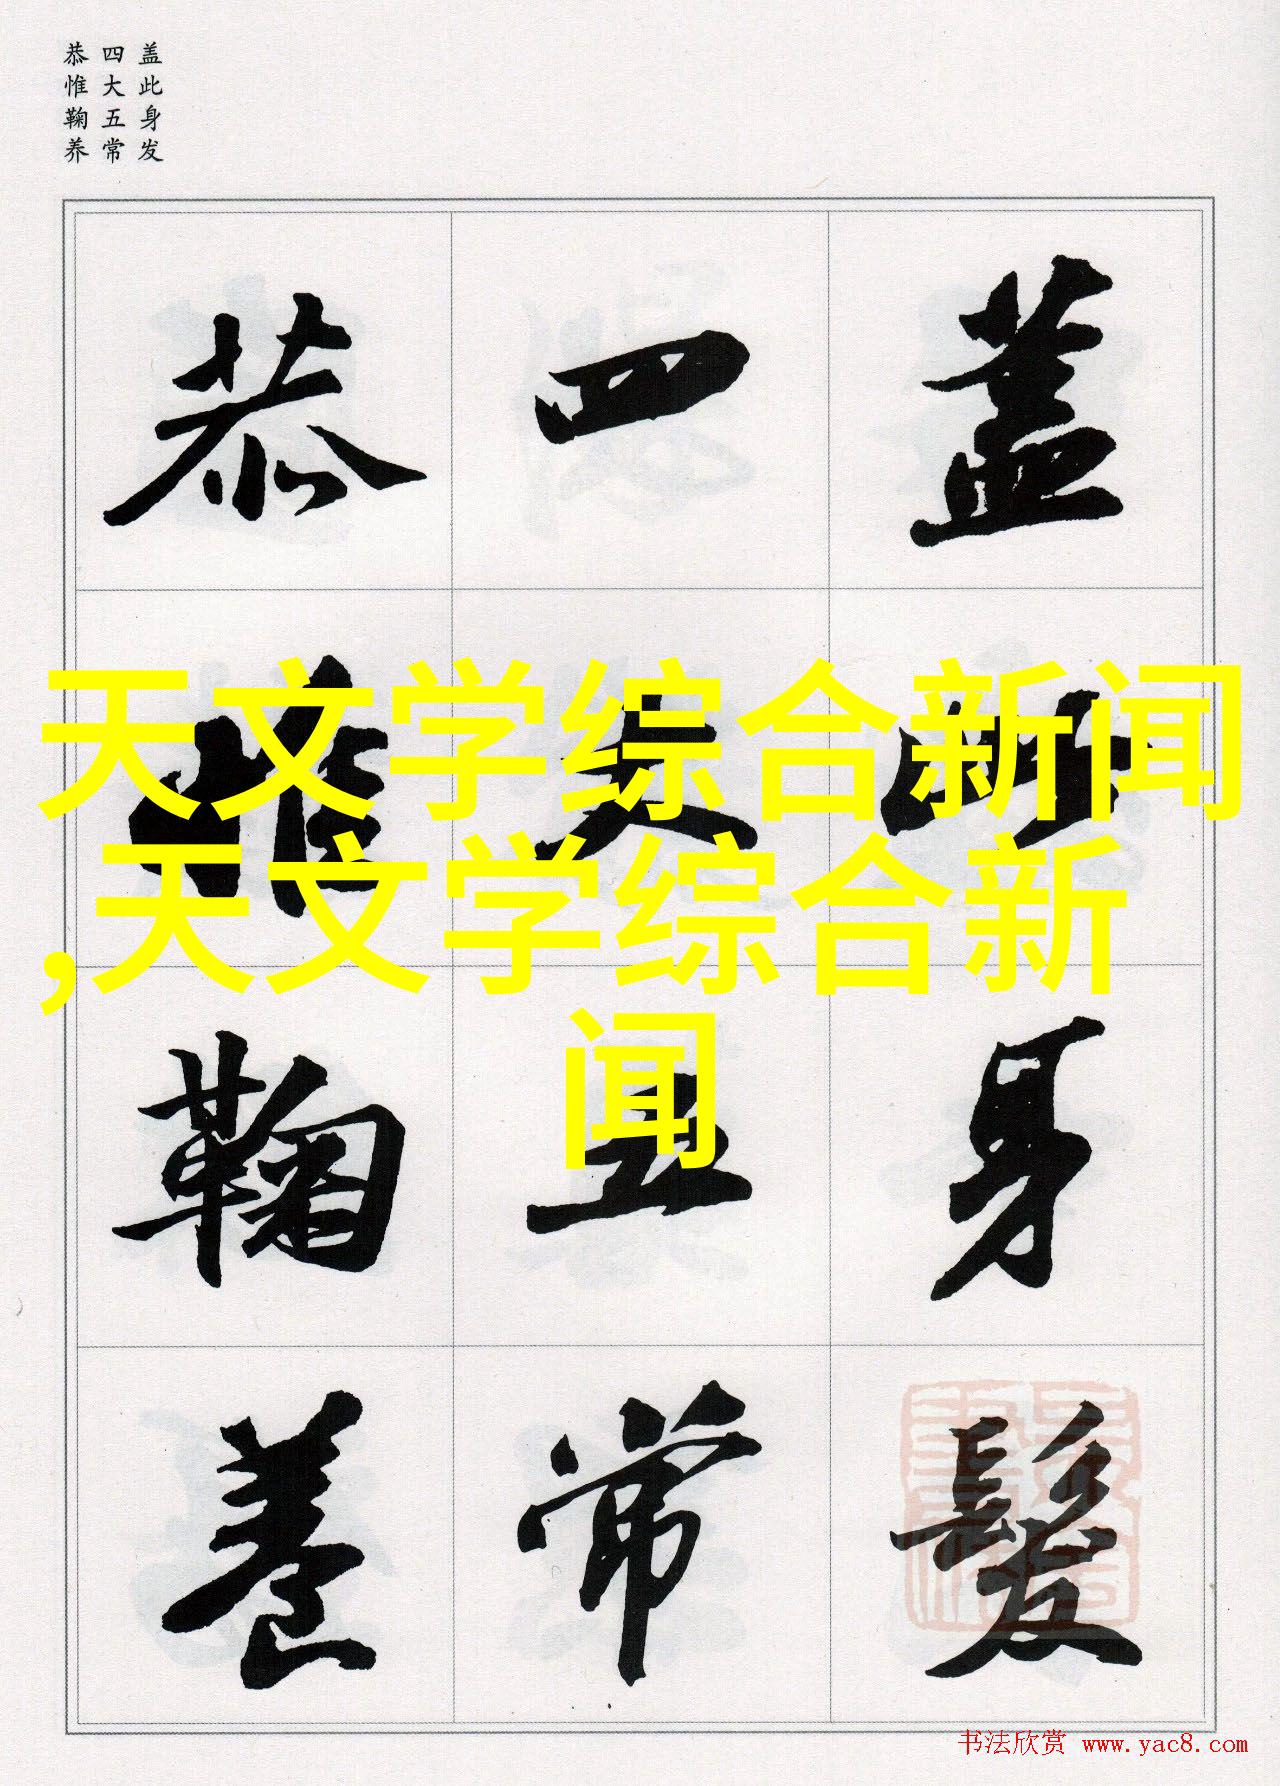 盖此身发
四大五常
恭惟鞠养
蓋此身髮
四大五常
恭惟鞠養
天文学综合新闻
,天文学综合新
闻
书法欣赏 www.yac8.com